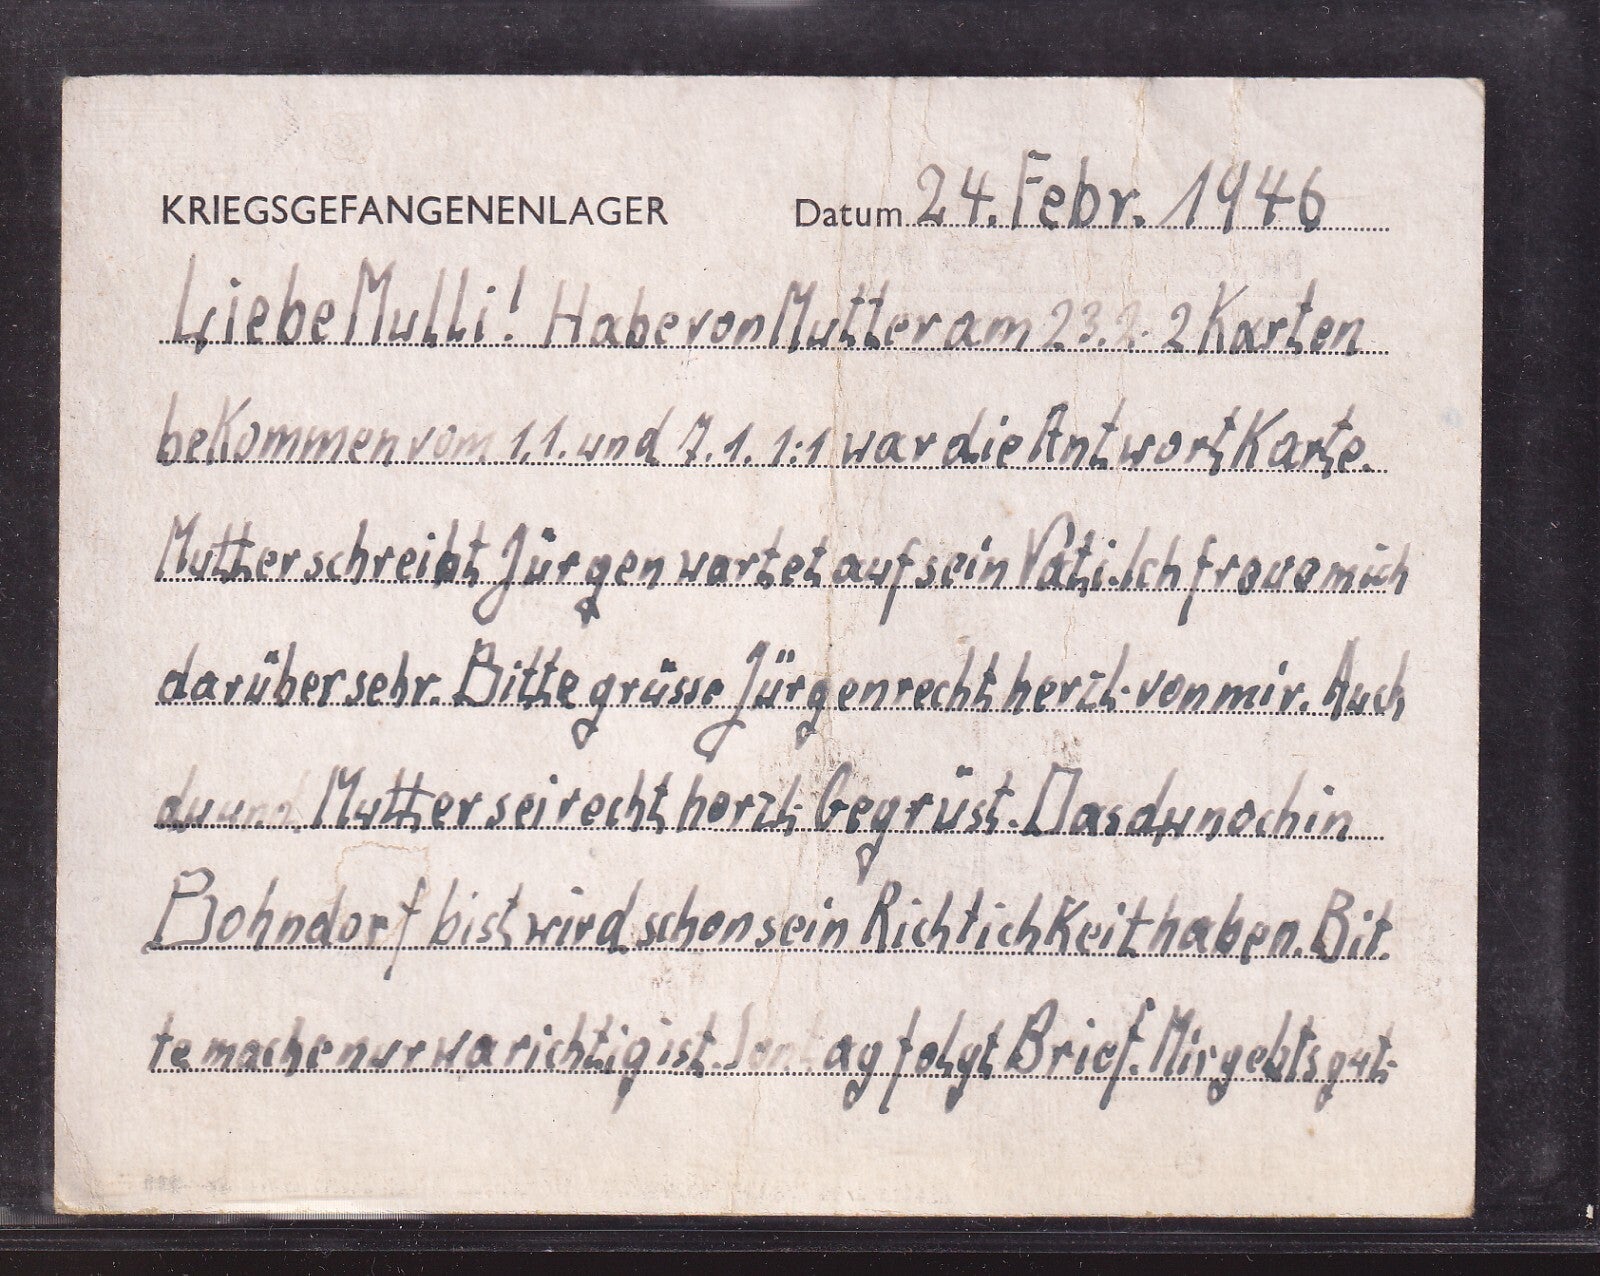 KRIEGSGEFANGENENLAGER Datum 24. Febr. 1946
Liebe Mulli! Habe von Mutter am 23.2. 2 Karten
beKommen vom 1.1. und 7.1. 1:1 war die AntwortKarte.
Mutter schreibt Jürgen wartet auf sein Vati. Ich freue mich
darüber sehr. Bitte grüsse Jürgen recht herzl. von mir. Auch
du und Mutter sei recht herzl. Gegrüst. Das du noch in
Bohndorf bist wird schon sein RichtichKeit haben. Bit.
te mache nur wa richtig ist. Sontag folgt Brief. Mir gehts gut.